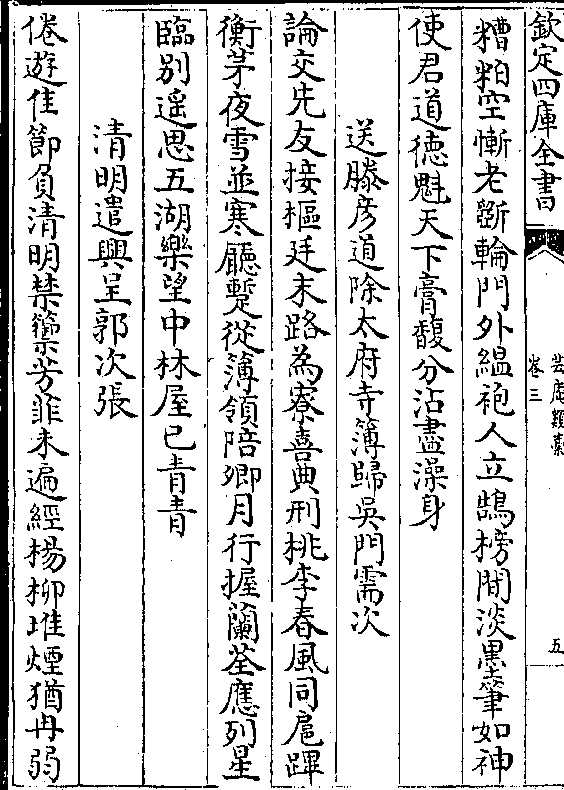 欽定四庫全書
芸庵類藁
卷三
五
糟粕空慚老斲輪門外緼袍人立鵠榜間淡墨筆如神
使君道徳魁天下膏馥分沾盡澡身
送滕彦道除太府寺簿歸吳門需次
論交先友接樞廷末路為寮喜典刑桃李春風同扈蹕
衡茅夜雪並寒廳蹔從簿領陪卿月行握蘭荃應列星
臨别遥思五湖樂望中林屋已青青
清明遣興呈郭次張
倦遊佳節負清明禁籞芳菲未遍經楊柳堆煙猶冉弱